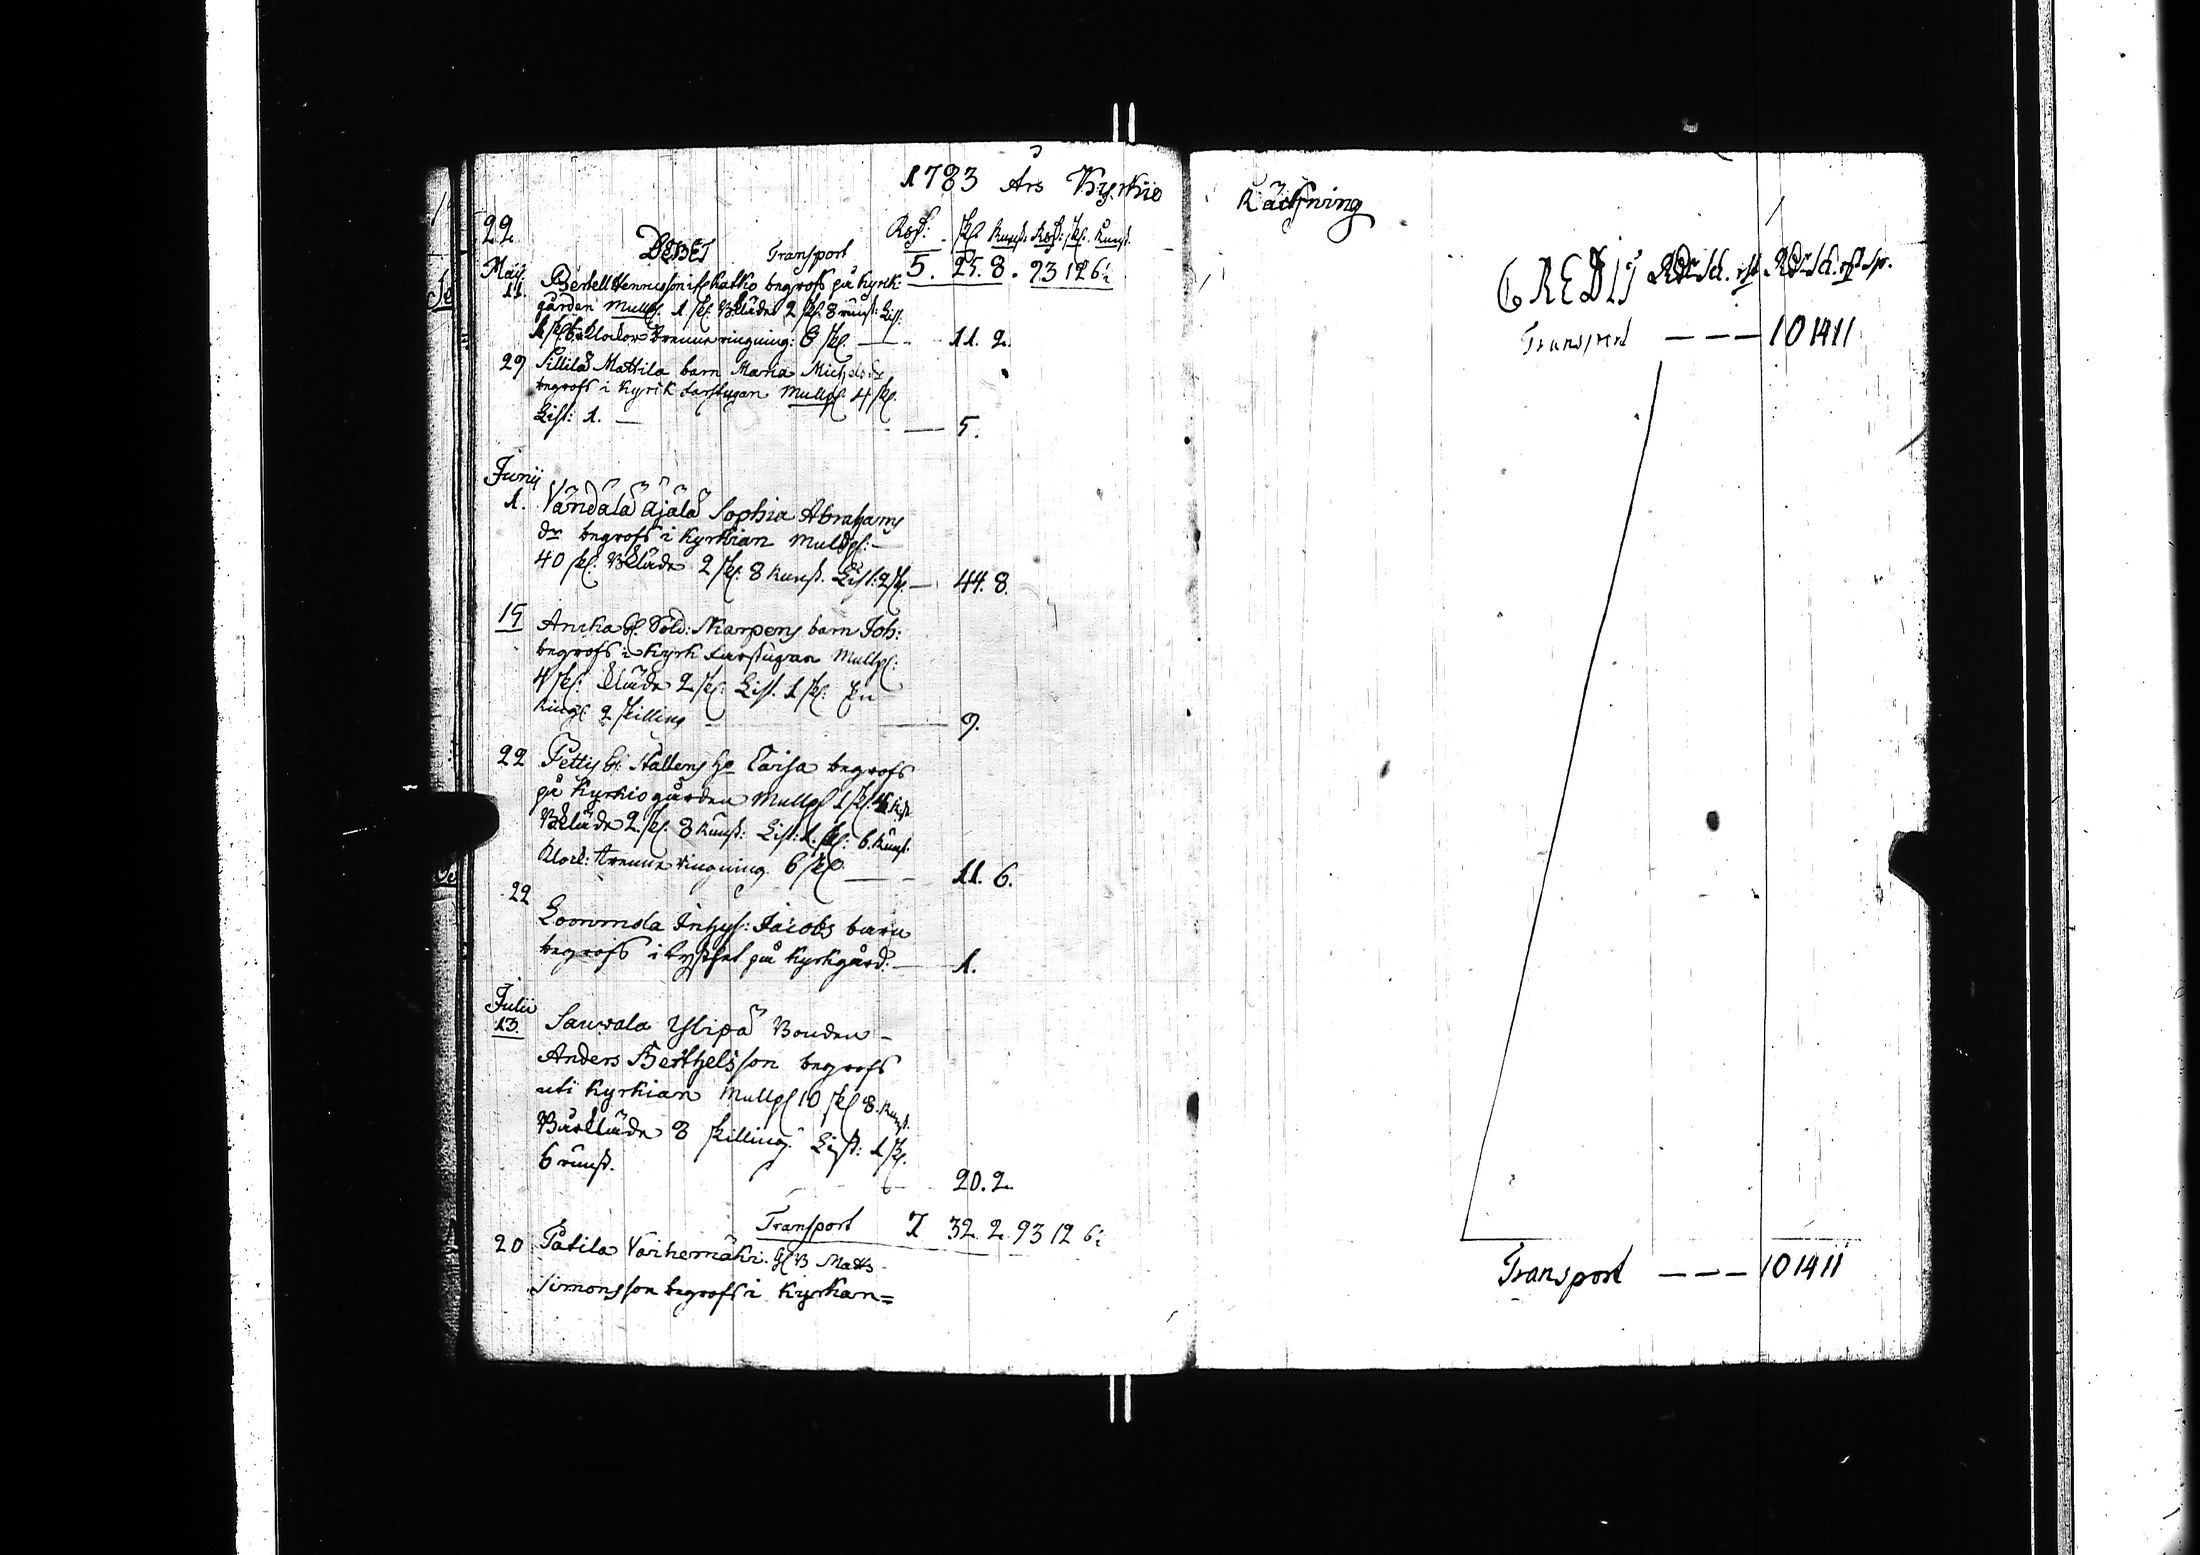 1783 Års Kyrkio
22.
DEBET Transport Rd: sk. runst. Rd: sk. runst.
5. 25. 8. 93 12 6½
Maij
11. Bertell Hennissonis begrofs på Kyrk:
gården Mullp. 1 sk. Bklädе 2 sk. 8 runst: List.
klockor trenne ringning: 6 sk. — 11. 2.
29 Sillilä Mattila barn Maria Michelsdr
begrofs i Kyrk farstugan Mullp. 4 sk.
List: 1. — — 5.
Junij
1. Vändälä Äjälä Sophia Abrahams
dr begrofs i Kyrkian Mullp: —
40 sk. Bkläde 2 sk: 8 runst. List: 2 sk. — 44. 8.
15 Ancka Sold: Skarpens barn Joh:
begrofs i Kyrk farstugan Mullp:
4 sk: kläde 2 sk: List. 1 sk: En
Ring: 2 skilling — 9.
22 Pettis Stallens Caisa begrofs
på Kyrkio gården Mullp 1 sk.
Bkläde 2. sk. 8 runst: List: 1. sk: 6. runst.
Klock: trenne ringning 6 sk — 11. 6.
22
Loowmola Inhys: Jacobs barn
begrofs i tysthet på Kyrkgård: — 1.
Julii
13. Sauvala Ylipä Bonden —
Anders Berthelsson begrofs
uti Kyrkian Mullp 10 sk 8. runst.
Bårkläde 8 skilling. List: 1 sk.
6 runst.
20. 2.
Transport 7 32. 2. 93 12 6½
20 Patila Varihemäki. Matts
Simonsson begrofs i Kyrkan=
Räckning
CREDIT Rdr Sch. rst Rdr Sch. rst sp.
Transport — — — 10 14 11
Transport — — — 10 14 11